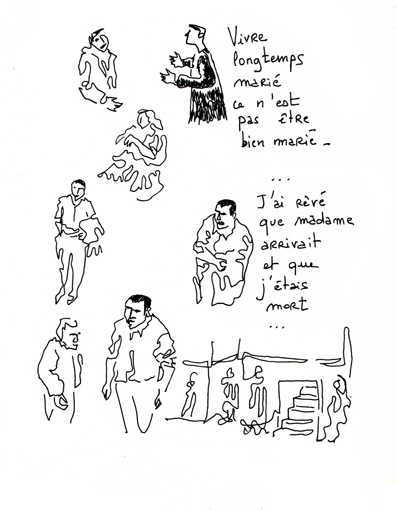 Vivre
longtemps
marié
ce n'est
pas être
bien marié_
...
J'ai rêvé
que madame
arrivait
et que
j'étais
mort
...